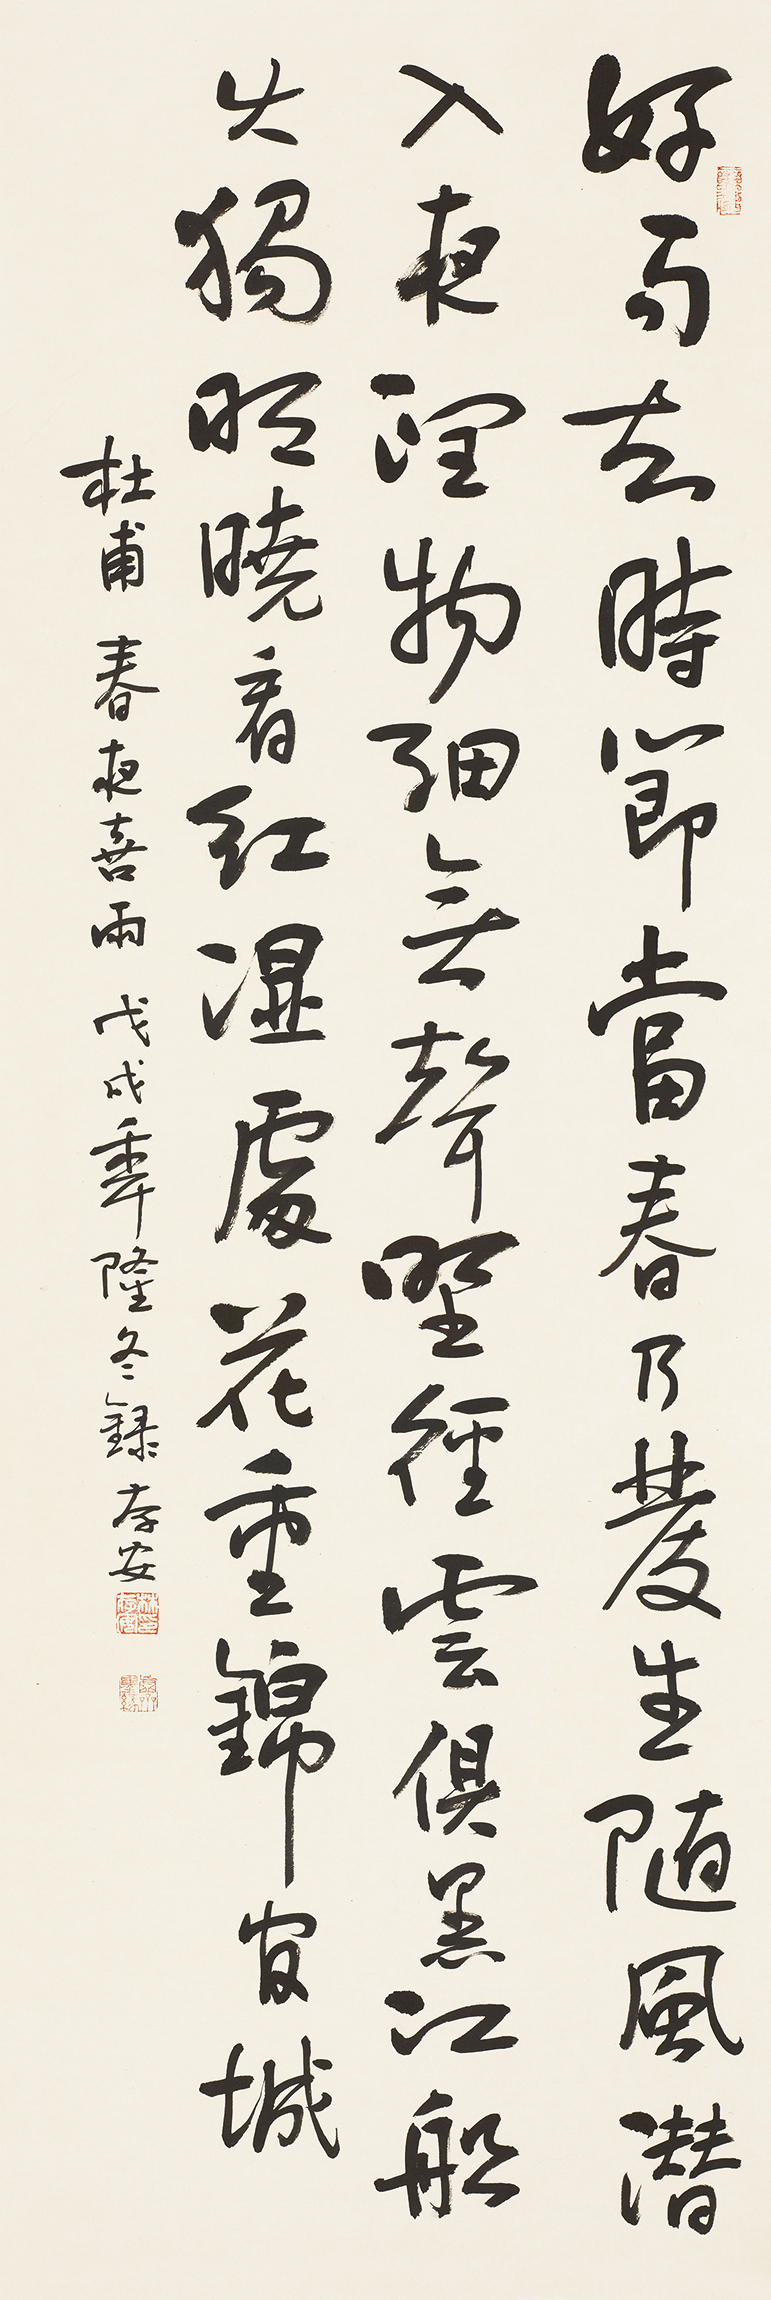 好雨知時節當春乃發生随風潜
入夜潤物細無聲野徑雲俱黑江船
火獨明曉看紅湿處花重錦官城
杜甫 春夜喜雨 戊戌年隆冬録 存安